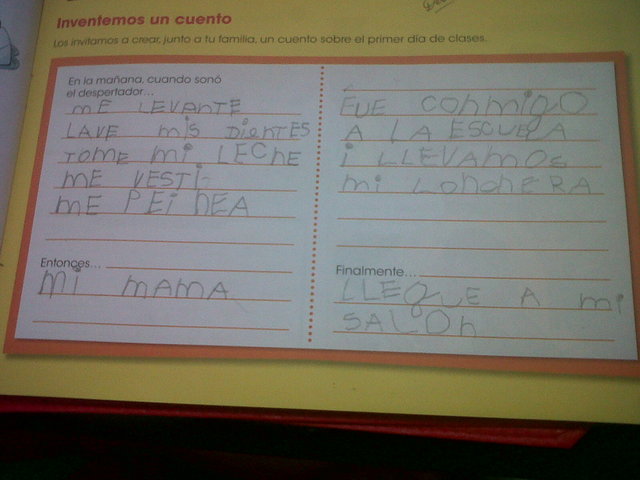 Inventemos un cuento
Los invitamos a crear, junto a tu familia, un cuento sobre el primer día de clases.
En la mañana, cuando sonó
el despertador...
mE LEVANTE
LAVE mis DiENTES
TOmE mi LECHE
mE VESTI
mE PEiNEA
Entonces...
mi mAmA
FUE conmigo
A LA ESCUELA
i LLEVAmOS
mi LonchERA
Finalmente...
LLEGUE A mi
SALOn